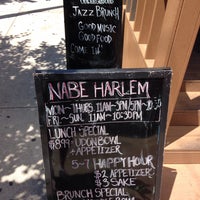 JAZZ BRUNCH
GOOD MUSIC
GOOD FOOD
COME IN
NABE HARLEM
MON-THURS 11AM-3PM/5PM-10:30
FRI-SUN 11AM-10:30PM
LUNCH SPECIAL
$8.99 UDON BOWL
+ APPETIZER
5-7 HAPPY HOUR
$2 APPETIZER
$3 SAKE
BRUNCH SPECIAL
BOWL